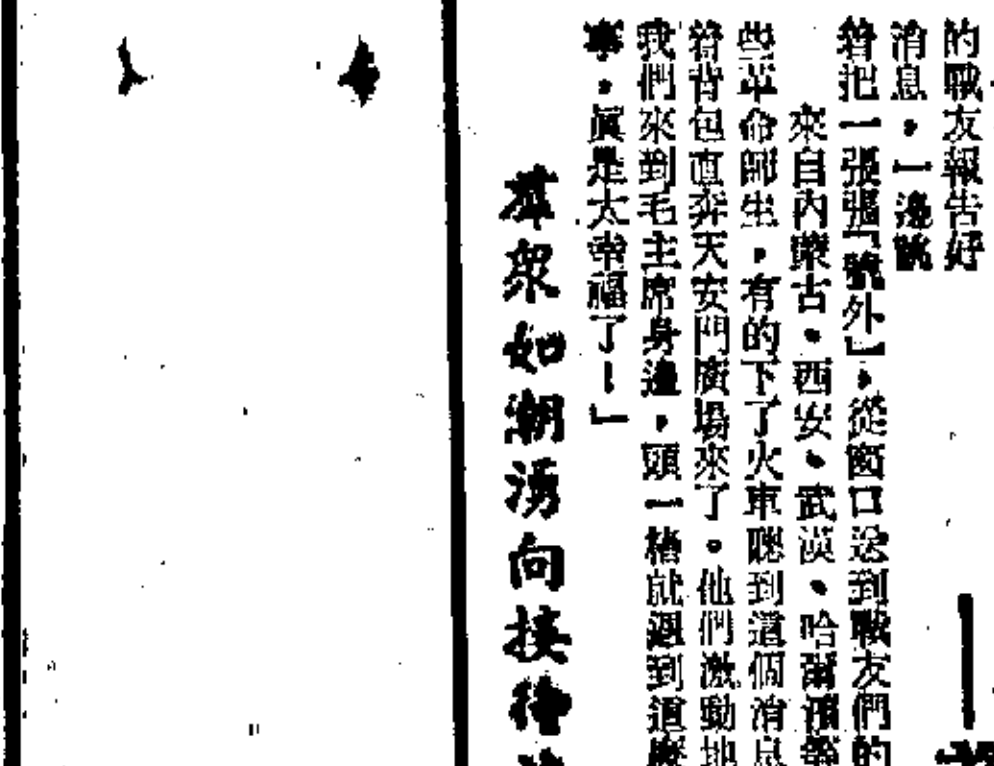 的戰友報告好
消息，一邊跳
着把一張張「號外」，從窗口送到戰友們的
來自內蒙古、西安、武漢、哈爾濱等
些革命師生，有的下了火車聽到這個消息
着背包直奔天安門廣場來了。他們激動地
我們來到毛主席身邊，頭一樁就趕到這麼
事，眞是太幸福了！」
羣衆如潮湧向接待